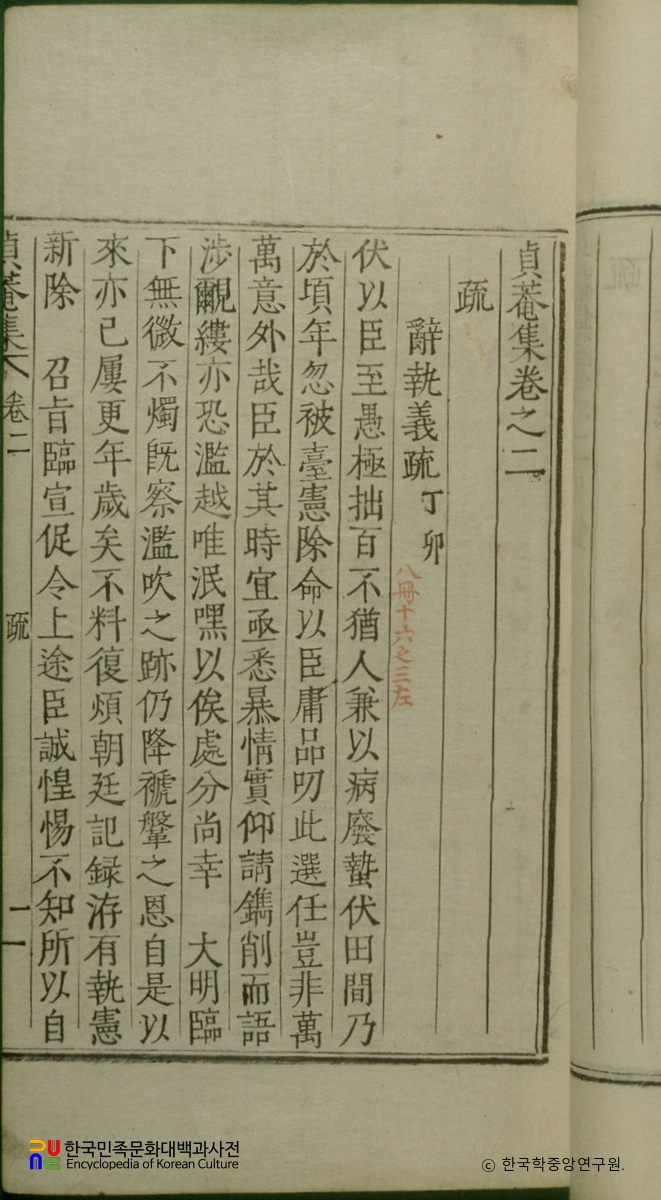 貞菴集卷之二
疏
辭執義疏 丁卯
八冊十六之三左
伏以臣至愚極拙百不猶人兼以病廢蟄伏田間乃
於頃年忽被臺憲除命以臣庸品叨此選任豈非萬
萬意外哉臣於其時宜亟悉暴情實仰請鐫削而語
涉覼縷亦恐濫越唯泯嘿以俟處分尚幸 大明臨
下無微不燭旣察濫吹之跡仍降褫鞶之恩自是以
來亦已屢更年歲矣不料復煩朝廷記録洊有執憲
新除 召旨臨宣促令上途臣誠惶惕不知所以自
貞菴集 卷二 疏 一
疏
한국민족문화대백과사전
Encyclopedia of Korean Culture
© 한국학중앙연구원.